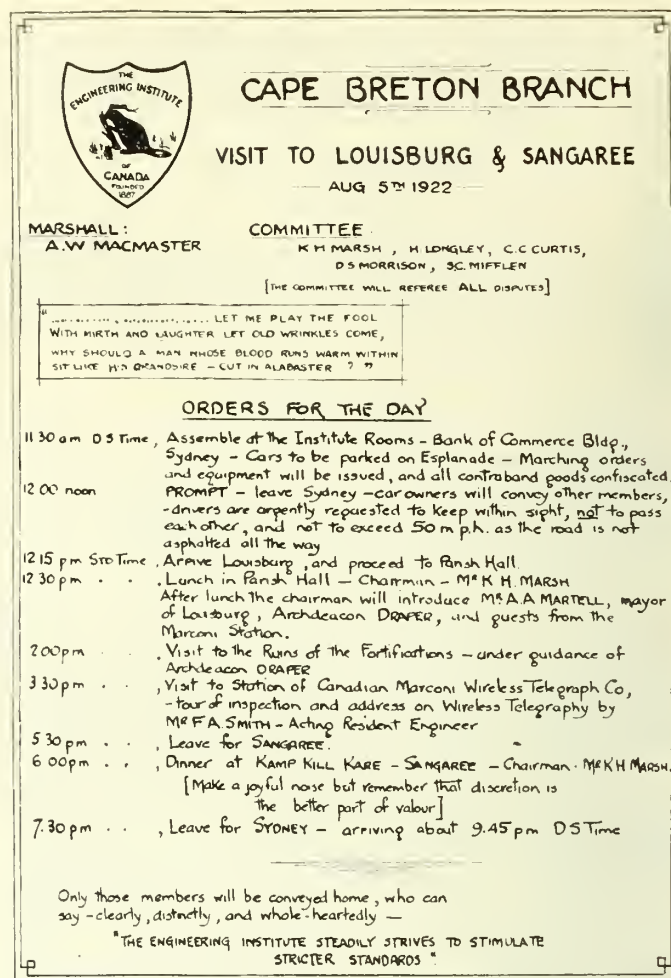 THE
ENGINEERING INSTITUTE
OF
CANADA
FOUNDED
1887
CAPE BRETON BRANCH
VISIT TO LOUISBURG & SANGAREE
AUG 5TH 1922
MARSHALL:
A.W MACMASTER
COMMITTEE
K H MARSH , H LONGLEY, C.C CURTIS,
D S MORRISON , S.C. MIFFLEN
[THE COMMITTEE WILL REFEREE ALL DISPUTES]
"........., .................. LET ME PLAY THE FOOL
WITH MIRTH AND LAUGHTER LET OLD WRINKLES COME,
WHY SHOULD A MAN WHOSE BLOOD RUNS WARM WITHIN
SIT LIKE HIS GRANDSIRE - CUT IN ALABASTER ? "
ORDERS FOR THE DAY
11 30 am D S Time , Assemble at the Institute Rooms - Bank of Commerce Bldg.,
Sydney - Cars to be parked on Esplanade - Marching orders
and equipment will be issued, and all contraband goods confiscated.
12 00 noon PROMPT - leave Sydney - car owners will convey other members,
- drivers are urgently requested to keep within sight, not to pass
each other, and not to exceed 50 m p.h. as the road is not
asphalted all the way
12 15 pm STD TIME , Arrive Louisburg , and proceed to Parish Hall.
12 30 pm . . , Lunch in Parish Hall - Chairman - MR K H. MARSH
After lunch the chairman will introduce MR A.A MARTELL, mayor
of Louisburg, Archdeacon DRAPER, and guests from the
Marconi Station.
2 00 pm . . , Visit to the Ruins of the Fortifications - under guidance of
Archdeacon DRAPER
3 30 pm . . , Visit to Station of Canadian Marconi Wireless Telegraph Co,
- tour of inspection and address on Wireless Telegraphy by
MR F A. SMITH - Acting Resident Engineer
5 30 pm . . , Leave for SANGAREE.
6 00 pm . . , Dinner at KAMP KILL KARE - SANGAREE - Chairman - MR K H MARSH.
[Make a joyful noise but remember that discretion is
the better part of valour]
7.30 pm . . , Leave for SYDNEY - arriving about 9.45 pm D S Time
Only those members will be conveyed home, who can
say - clearly, distinctly, and whole-heartedly -
"THE ENGINEERING INSTITUTE STEADILY STRIVES TO STIMULATE
STRICTER STANDARDS".